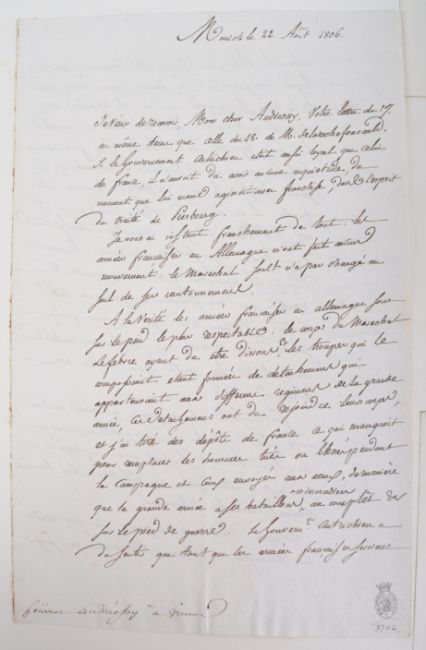 Munich le 22 Août 1806.
Je viens de recevoir, Mon cher Andréossy, Votre lettre du 17.
en même tems que celle du 18. de M. de la rochefoucauld.
Si le Gouvernement Autrichien était aussi loyal que celui
de france, il n'aurait du avoir aucune inquiétude, du
moment que lui même agissait avec franchise, dans l'esprit
du traité de Presbourg.
Je vous ai instruit franchement de tout: les
armées françaises en Allemagne n'ont fait aucun
mouvement: le Marechal Soult n'a pas changé un
seul de ses cantonnemens
A la Verité les armées françaises en allemagne sont
sur le pied le plus respectable: le corps du Marechal
Lefebvre ayant du être dissous et les troupes qui le
composaient étant formées de detachemens qui
appartenaient aux differens regimens de la grande
armée, ces detachemens ont du rejoindre leurs corps,
et j'ai tiré des dépôts de france ce qui manquait
pour remplacer les hommes tués ou blessés pendant
la Campagne et les ai envoyés aux corps, de manière
que la grande armée a ses bataillons au complet
sur le pied de guerre. Le Gouvernt. Autrichien a
du sentir que tant que les armées françaises seraient
Général andreossy à Vienne